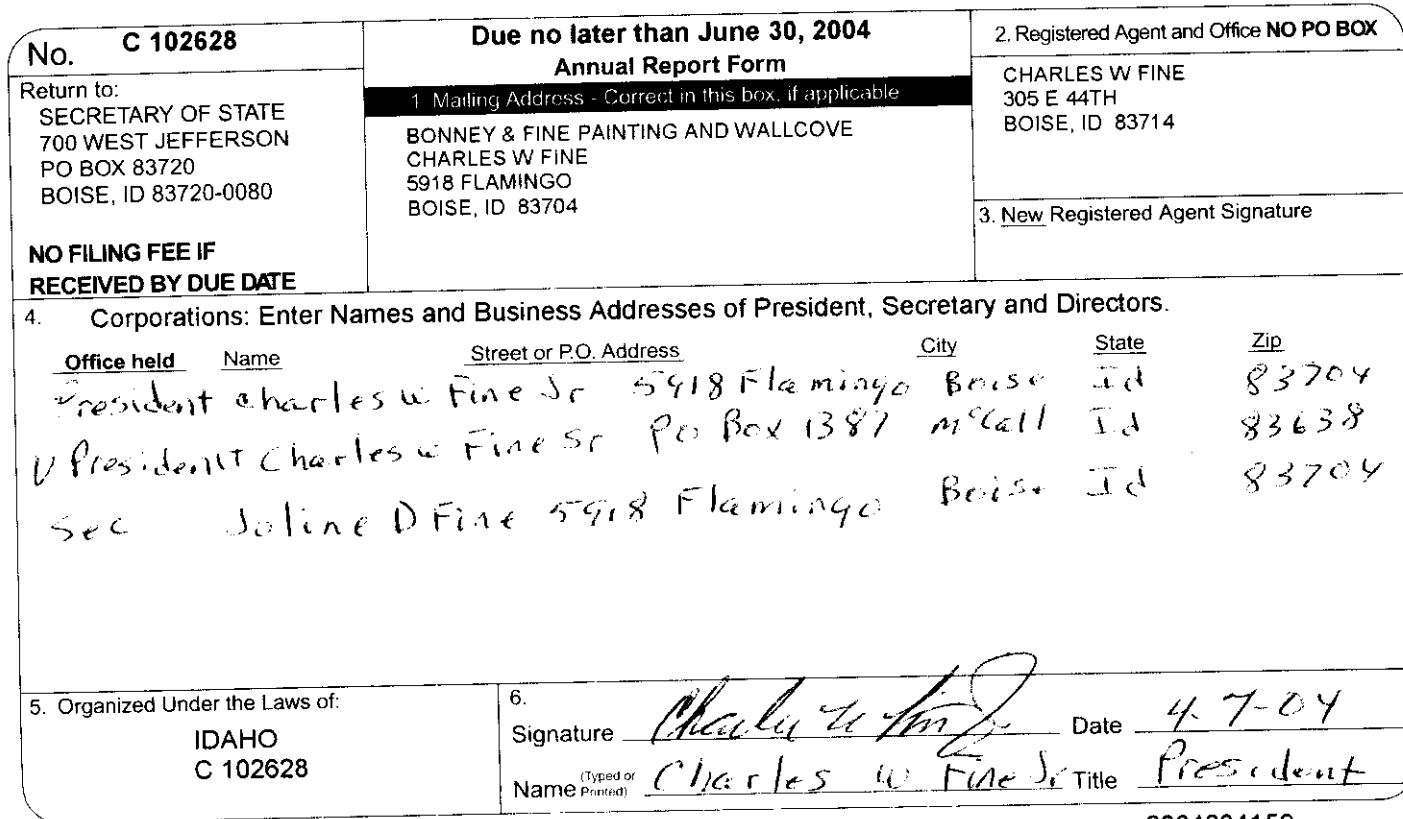 No. C 102628
Return to:
SECRETARY OF STATE
700 WEST JEFFERSON
PO BOX 83720
BOISE, ID 83720-0080
NO FILING FEE IF
RECEIVED BY DUE DATE
Due no later than June 30, 2004
Annual Report Form
1 Mailing Address - Correct in this box, if applicable
BONNEY & FINE PAINTING AND WALLCOVE
CHARLES W FINE
5918 FLAMINGO
BOISE, ID 83704
2. Registered Agent and Office NO PO BOX
CHARLES W FINE
305 E 44TH
BOISE, ID 83714
3. New Registered Agent Signature
4. Corporations: Enter Names and Business Addresses of President, Secretary and Directors.
Office held Name Street or P.O. Address City State Zip
President Charles W Fine Jr 5918 Flamingo Boise Id 83704
V President Charles W Fine Sr PO Box 1387 McCall Id 83638
Sec Joline D Fine 5918 Flamingo Boise Id 83704
5. Organized Under the Laws of:
IDAHO
C 102628
6.
Signature Charles W Fine Jr Date 4-7-04
Name (Typed or Printed) Charles W Fine Jr Title President